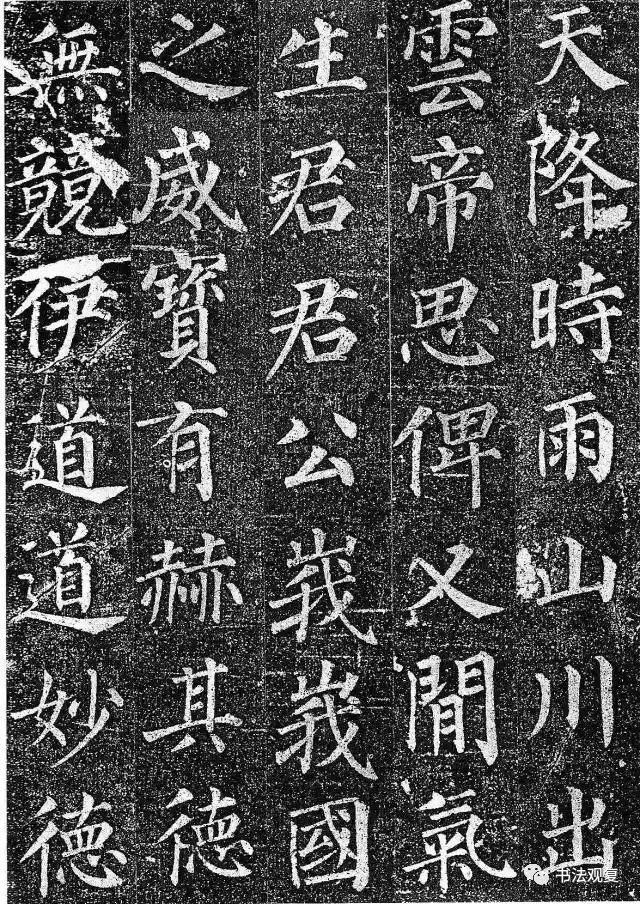 天降時雨山川出
雲帝思俾乂閒氣
生君君公峩峩國
之威寶有赫其德
無競伊道道妙德
书法观复